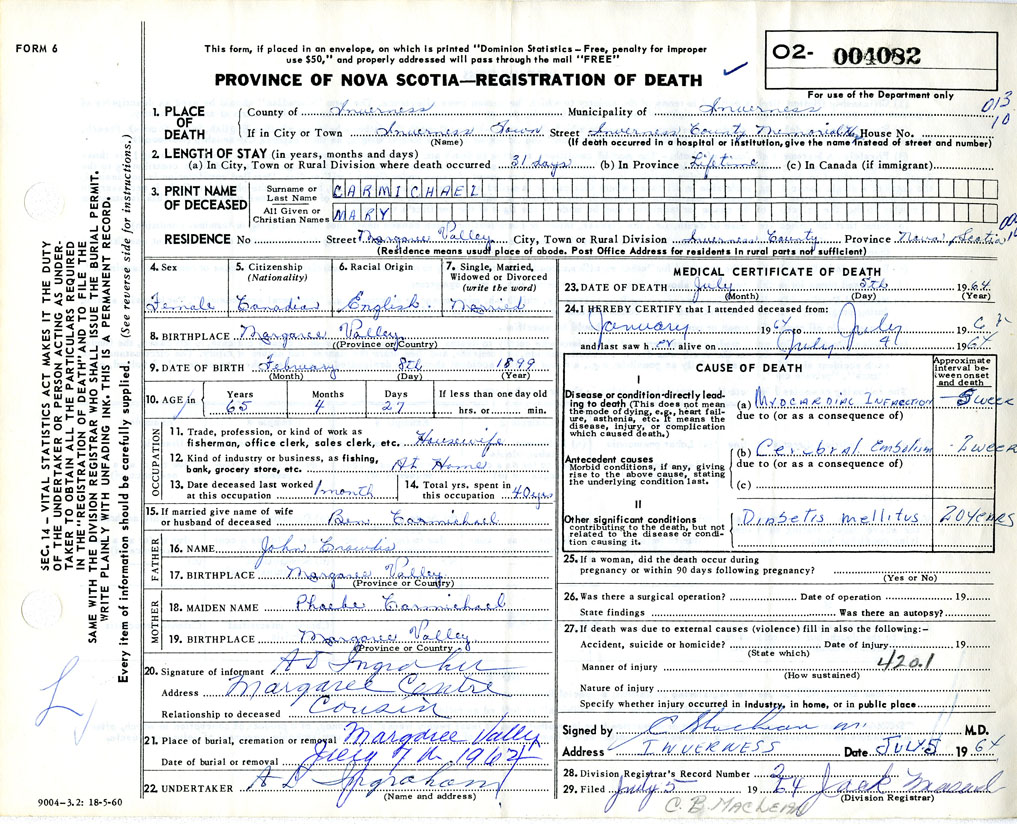 FORM 6
This form, if placed in an envelope, on which is printed "Dominion Statistics – Free, penalty for improper
use $50," and properly addressed will pass through the mail "FREE"
PROVINCE OF NOVA SCOTIA—REGISTRATION OF DEATH
O2- 004082
For use of the Department only
013
10
1. PLACE OF DEATH
County of Inverness Municipality of Inverness
If in City or Town Inverness Town Street Inverness County Memorial House No.
(Name) (If death occurred in a hospital or institution, give the name instead of street and number)
2. LENGTH OF STAY (in years, months and days)
(a) In City, Town or Rural Division where death occurred 31 days (b) In Province Lifetime (c) In Canada (if immigrant)
3. PRINT NAME OF DECEASED
Surname or Last Name CARMICHAEL
All Given or Christian Names MARY
RESIDENCE No Street Margaree Valley City, Town or Rural Division Inverness County Province Nova Scotia
(Residence means usual place of abode. Post Office Address for residents in rural parts not sufficient)
4. Sex 5. Citizenship (Nationality) 6. Racial Origin 7. Single, Married, Widowed or Divorced (write the word)
Female Canadian English Married
8. BIRTHPLACE Margaree Valley
(Province or Country)
9. DATE OF BIRTH February 8th 1899
(Month) (Day) (Year)
10. AGE in Years Months Days If less than one day old
65 4 27 hrs. or min.
OCCUPATION
11. Trade, profession, or kind of work as
fisherman, office clerk, sales clerk, etc. Housewife
12. Kind of industry or business, as fishing,
bank, grocery store, etc. At Home
13. Date deceased last worked at this occupation 1 month
14. Total yrs. spent in this occupation 40 yrs
15. If married give name of wife
or husband of deceased Ben Carmichael
FATHER
16. NAME John Crowdis
17. BIRTHPLACE Margaree Valley
(Province or Country)
MOTHER
18. MAIDEN NAME Phoebe Carmichael
19. BIRTHPLACE Margaree Valley
(Province or Country)
20. Signature of informant A D Ingraham
Address Margaree Centre
Relationship to deceased Cousin
21. Place of burial, cremation or removal Margaree Valley
Date of burial or removal July 7th 1964
22. UNDERTAKER A D Ingraham
(Name and address)
9004–3.2: 18-5-60
MEDICAL CERTIFICATE OF DEATH
23. DATE OF DEATH July 5th 1964
(Month) (Day) (Year)
24. I HEREBY CERTIFY that I attended deceased from:
January 1964 to July 1964
and last saw her alive on July 4 1964
CAUSE OF DEATH
Approximate interval between onset and death
I
Disease or condition directly leading to death (This does not mean the mode of dying, e.g., heart failure, asthenia, etc. It means the disease, injury, or complication which caused death.)
(a) MYOCARDIAL INFARCTION – 5 WEEK
due to (or as a consequence of)
Antecedent causes
Morbid conditions, if any, giving rise to the above cause, stating the underlying condition last.
(b) Cerebral Embolism 2 week
due to (or as a consequence of)
(c)
II
Other significant conditions
contributing to the death, but not related to the disease or condition causing it.
Diabetis mellitus 20 YEARS
25. If a woman, did the death occur during
pregnancy or within 90 days following pregnancy?
(Yes or No)
26. Was there a surgical operation? Date of operation 19
State findings Was there an autopsy?
27. If death was due to external causes (violence) fill in also the following:–
Accident, suicide or homicide? Date of injury 19
(State which)
Manner of injury 420.1
(How sustained)
Nature of injury
Specify whether injury occurred in industry, in home, or in public place
Signed by M.D.
Address INVERNESS Date JULY 5 1964
28. Division Registrar's Record Number 2
29. Filed July 5 1964 Jack
(Division Registrar)
C. B. MacLean
SEC. 14 – VITAL STATISTICS ACT MAKES IT THE DUTY
OF THE UNDERTAKER OR PERSON ACTING AS UNDER-
TAKER TO OBTAIN ALL THE PARTICULARS REQUIRED
IN THE "REGISTRATION OF DEATH" AND TO FILE THE
SAME WITH THE DIVISION REGISTRAR WHO SHALL ISSUE THE BURIAL PERMIT.
WRITE PLAINLY WITH UNFADING INK. THIS IS A PERMANENT RECORD.
Every item of information should be carefully supplied. (See reverse side for instructions.